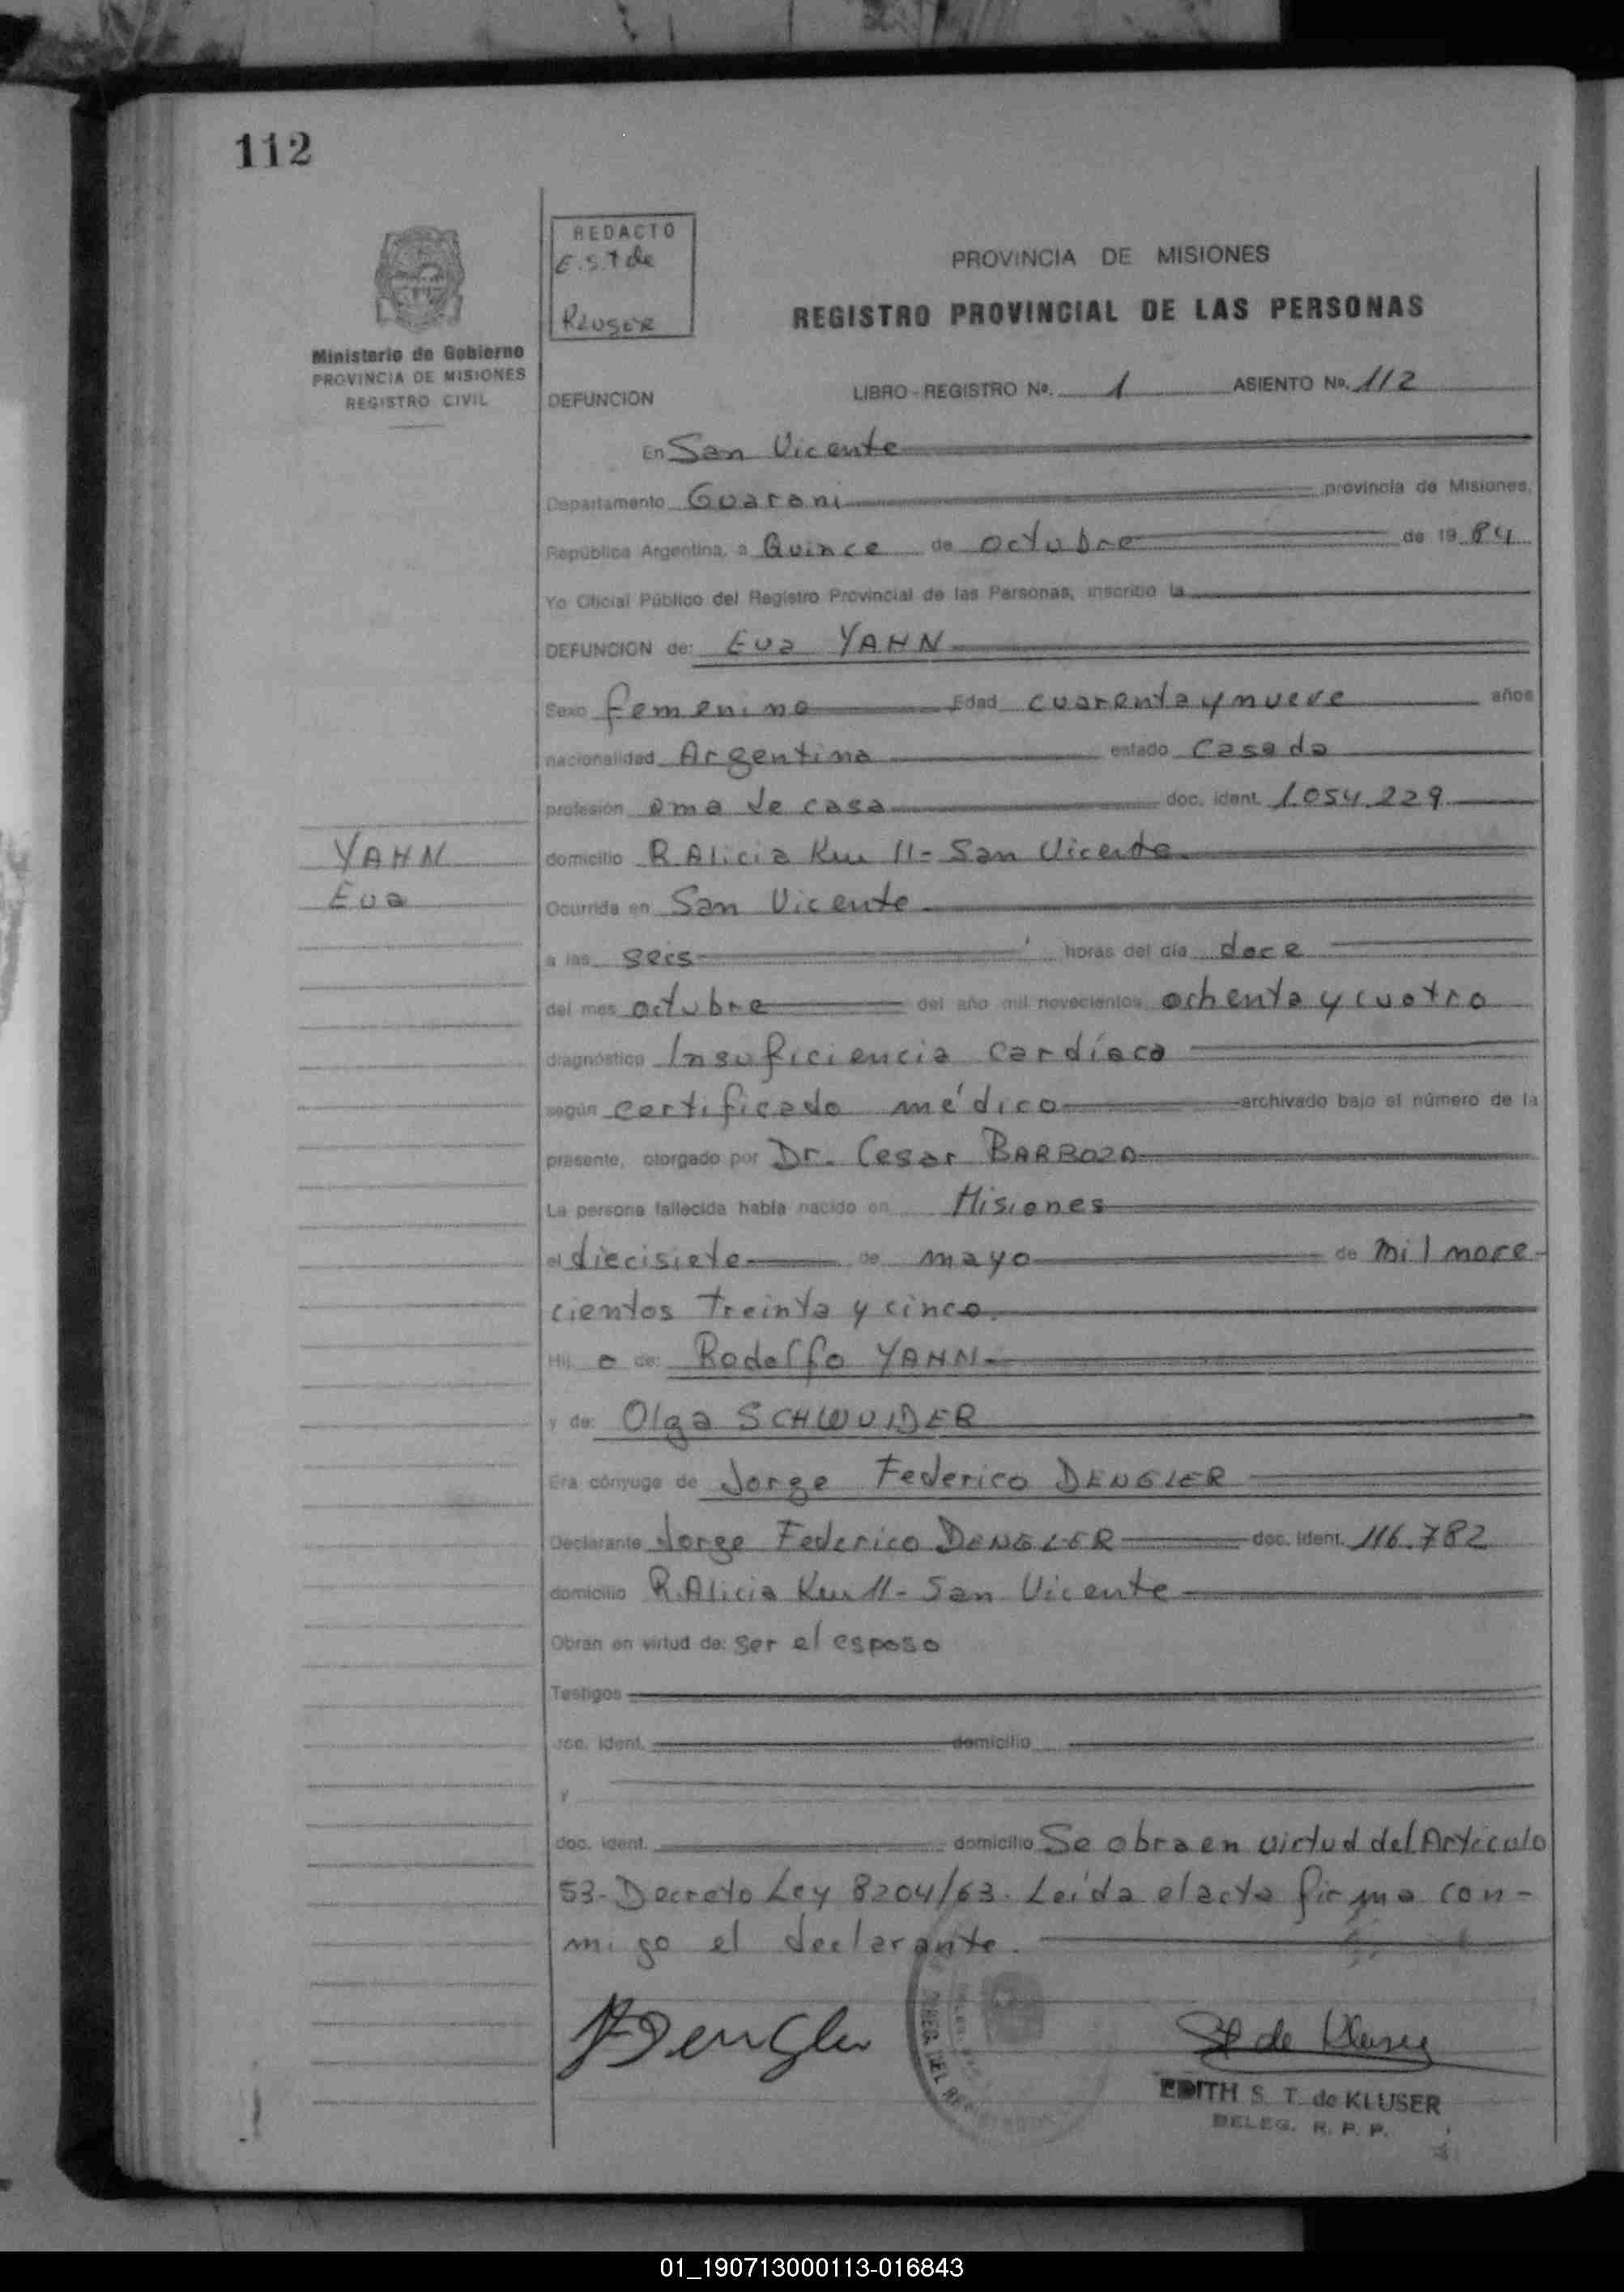 112
REDACTO
E.S.T de
KLUSER
Ministerio de Gobierno
PROVINCIA DE MISIONES
REGISTRO CIVIL
PROVINCIA DE MISIONES
REGISTRO PROVINCIAL DE LAS PERSONAS
DEFUNCION LIBRO - REGISTRO No. 1 ASIENTO No. 112
En San Vicente
Departamento Guarani provincia de Misiones,
República Argentina, a Quince de octubre de 19 84
Yo Oficial Público del Registro Provincial de las Personas, inscribo la
DEFUNCION de: Eva YAHN
Sexo femenino Edad cuarenta y nueve años
nacionalidad Argentina estado Casada
profesión ama de casa doc. ident. 1.054.229
YAHN
Eva
domicilio R. Alicia Km 11 - San Vicente
Ocurrida en San Vicente
a las seis horas del día doce
del mes octubre del año mil novecientos ochenta y cuatro
diagnóstico Insuficiencia cardíaca
según certificado médico archivado bajo el número de la
presente, otorgado por Dr. Cesar BARBOZA
La persona fallecida había nacido en Misiones
el diecisiete de mayo de mil nove-
cientos treinta y cinco.
Hij a de: Rodolfo YAHN
y de: Olga SCHWUIDER
Era cónyuge de Jorge Federico DENGLER
Declarante Jorge Federico DENGLER doc. ident. 116.782
domicilio R. Alicia Km 11 - San Vicente
Obran en virtud de: ser el esposo
Testigos
doc. ident. domicilio
y
doc. ident. domicilio Se obra en virtud del Artículo
53 - Decreto Ley 8204/63. Leída el acta firma con-
migo el declarante.
Dengler
ST de Kluser
EDITH S. T. de KLUSER
DELEG. R. P. P.
01_190713000113-016843